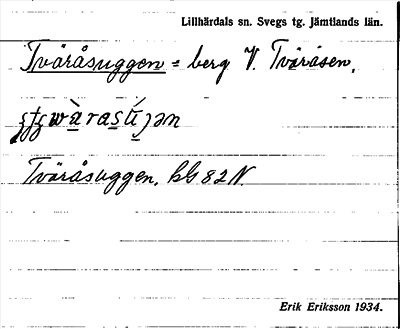 Lillhärdals sn. Svegs tg. Jämtlands län.
Tväråsuggen = berg V. Tväråsen,
Tväråsuggen, bl. 82 N.
Erik Eriksson 1934.